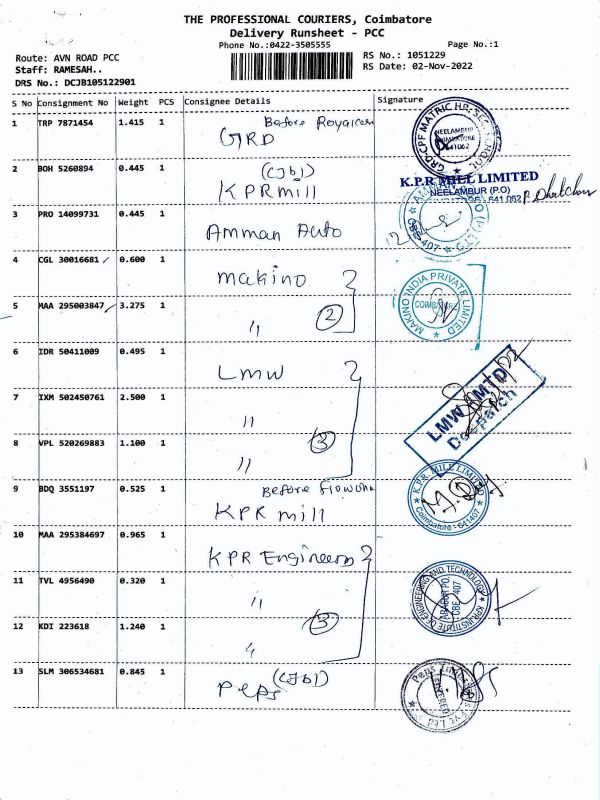 THE PROFESSIONAL COURIERS, Coimbatore
Delivery Runsheet - PCC
Phone No.:0422-3505555
Page No.:1
Route: AVN ROAD PCC
Staff: RAMESAH..
DRS No.: DCJB105122901
RS No.: 1051229
RS Date: 02-Nov-2022
S No Consignment No Weight PCS Consignee Details Signature
1 TRP 7871454 1.415 1 Before
GRD
GRD-CPF MATRIC HR. SEC
NEELAMBUR
641062
2 BOH 5260894 0.445 1 (CJb1)
KPR mill
K.P.R MILL LIMITED
NEELAMBUR (P.O)
641 062
3 PRO 14099731 0.445 1 Amman Auto
CBE-407
4 CGL 30016681 0.600 1 makino
MAKINO INDIA PRIVATE LIMITED
5 MAA 295003847 3.275 1 " (2)
6 IDR 50411009 0.495 1 LMW
LMW LMTD
Despatch
7 IXM 502450761 2.500 1 "
8 VPL 520269883 1.100 1 " (3)
9 BDQ 3551197 0.525 1 Before
KPR mill
K.P.R. MILL LIMITED
Coimbatore - 641407
10 MAA 295384697 0.965 1 KPR Engineers
11 TVL 4956490 0.320 1 "
KPR INSTITUTE OF ENGINEERING AND TECHNOLOGY
ARASUR PO.
CBE 407
12 KDI 223618 1.240 1 " (3)
13 SLM 306534681 0.845 1 (CJb1)
Peps
Peps
Pvt Ltd